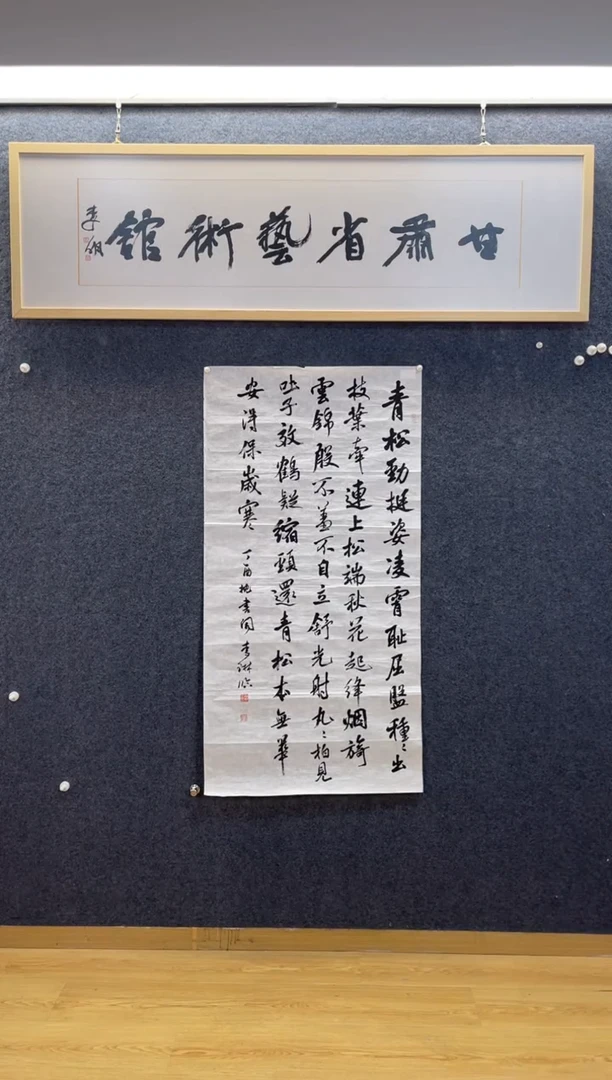 甘肅省藝術館
青松勁挺姿凌霄恥屈盤種〻出
枝葉牽連上松端秋花起絳烟旖
雲錦殷不羞不自立舒光射丸〻柏見
吐子效鶴疑縮頸還青松本無華
安得保歲寒
丁酉